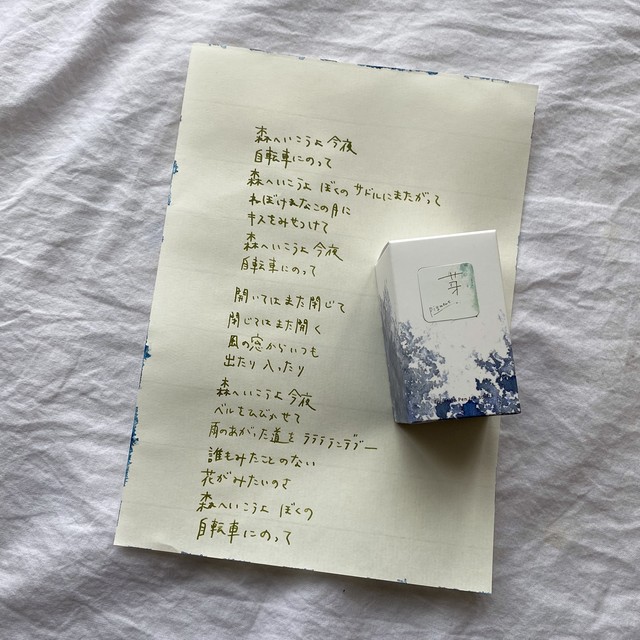 森へいこうよ今夜
自転車にのって
森へいこうよ ぼくの サドルにまたがって
ねぼけまなこの月に
キスをみせつけて
森へいこうよ 今夜
自転車にのって
開いてはまた閉じて
閉じてはまた開く
風の窓からいつも
出たり 入ったり
森へいこうよ今夜
ベルをひびかせて
雨のあがった道を ラララランデブー
誰もみたことのない
花がみたいのさ
森へいこうよ ぼくの
自転車にのって
芽